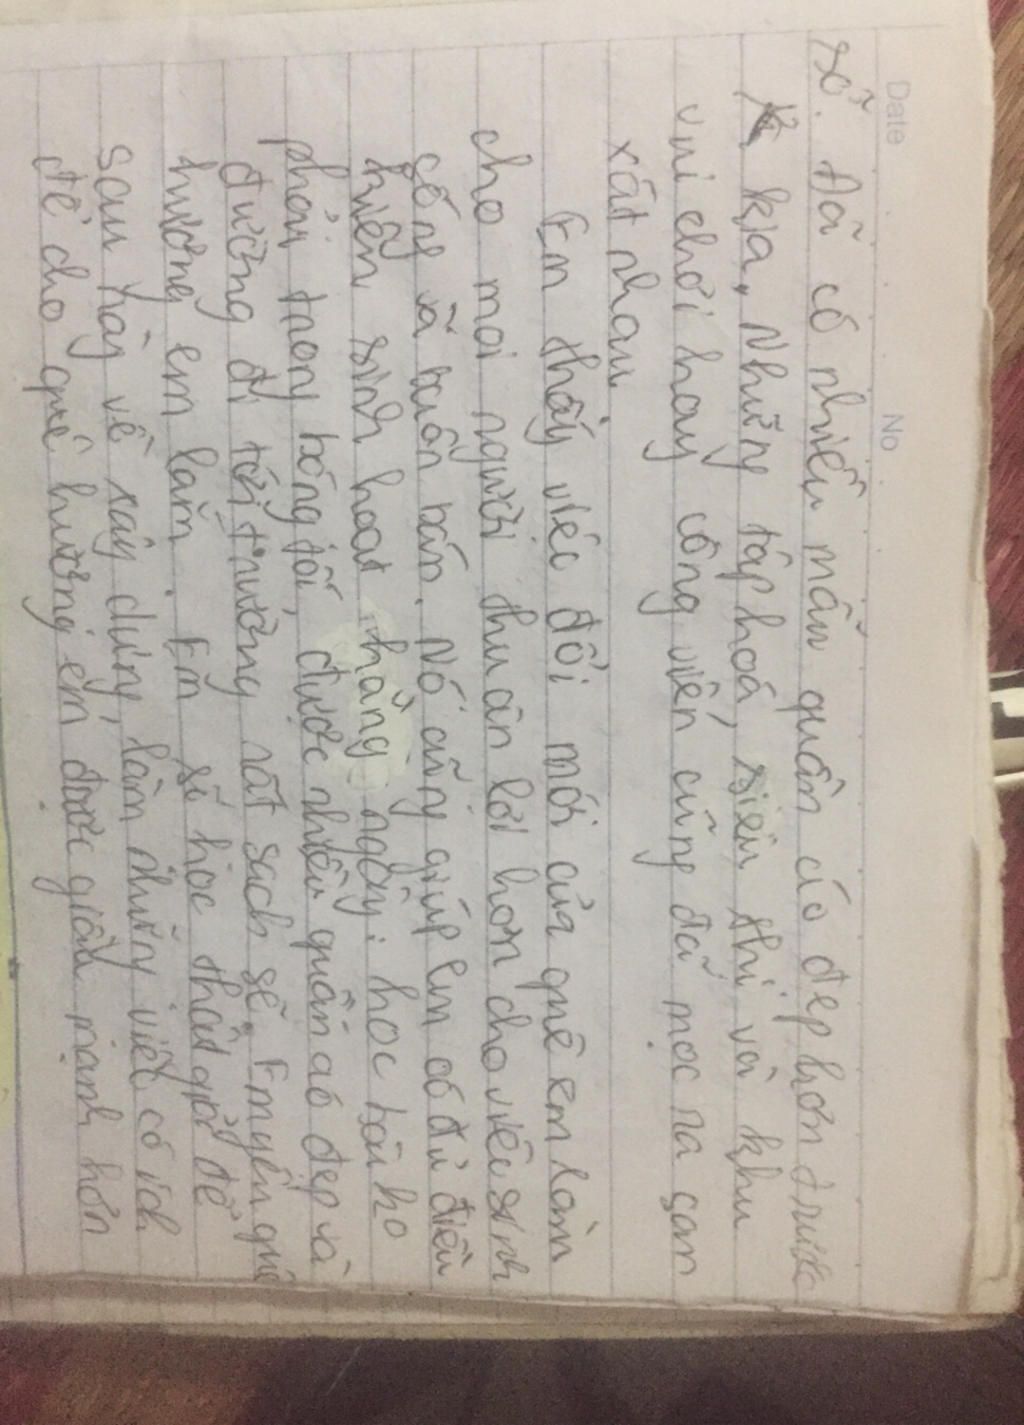 Date No
rỡ. Đã có nhiều mẫu quần áo đẹp hơn trước
kia. Những tập hoá, siêu thị và khu
vui chơi hay công viên cũng đã mọc ra san
xát nhau
Em thấy việc đổi mới của quê em làm
cho mọi người thuận lợi hơn cho việc sinh
sống và buôn bán. Nó cũng giúp em có đủ điều
kiện sinh hoạt hằng ngày: học bài ko
phải trong bóng tối, được nhiều quần áo đẹp và
đường đi tới trường rất sạch sẽ. Em yêu quê
hương em lắm. Em sẽ học thật giỏi để
sau này về xây dựng, làm những việc có ích
để cho quê hương em được giàu mạnh hơn